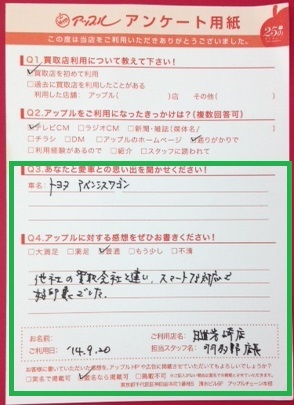 アップル アンケート用紙
25th
この度は当店をご利用いただきありがとうございました。
Q1.買取店利用について教えて下さい!
☑買取店を初めて利用
□過去に買取店を利用したことがある
利用した店舗: アップル( )店 その他( )
Q2.アップルをご利用になったきっかけは?(複数回答可)
☑テレビCM □ラジオCM □新聞・雑誌(媒体名/ )
□チラシ □DM □アップルのホームページ ☑通りがかりで
□利用経験があるので □紹介 □スタッフに誘われて
Q3.あなたと愛車との思い出を聞かせください!
車名: トヨタ
Q4.アップルに対する感想をぜひお書きください!
□大満足 □満足 ☑普通 □不満
他社の買取会社と違い、スマートな対応で
好印象でした。
お名前: ご利用店名:
ご利用日: '14.9.20 担当スタッフ名: 店長
お客様に書いていただいた感想を、アップルHPや広告に掲載させていただいてもよろしいでしょうか?
□実名で掲載可 ☑仮名なら掲載可 □掲載不可
アップルチェーン本部